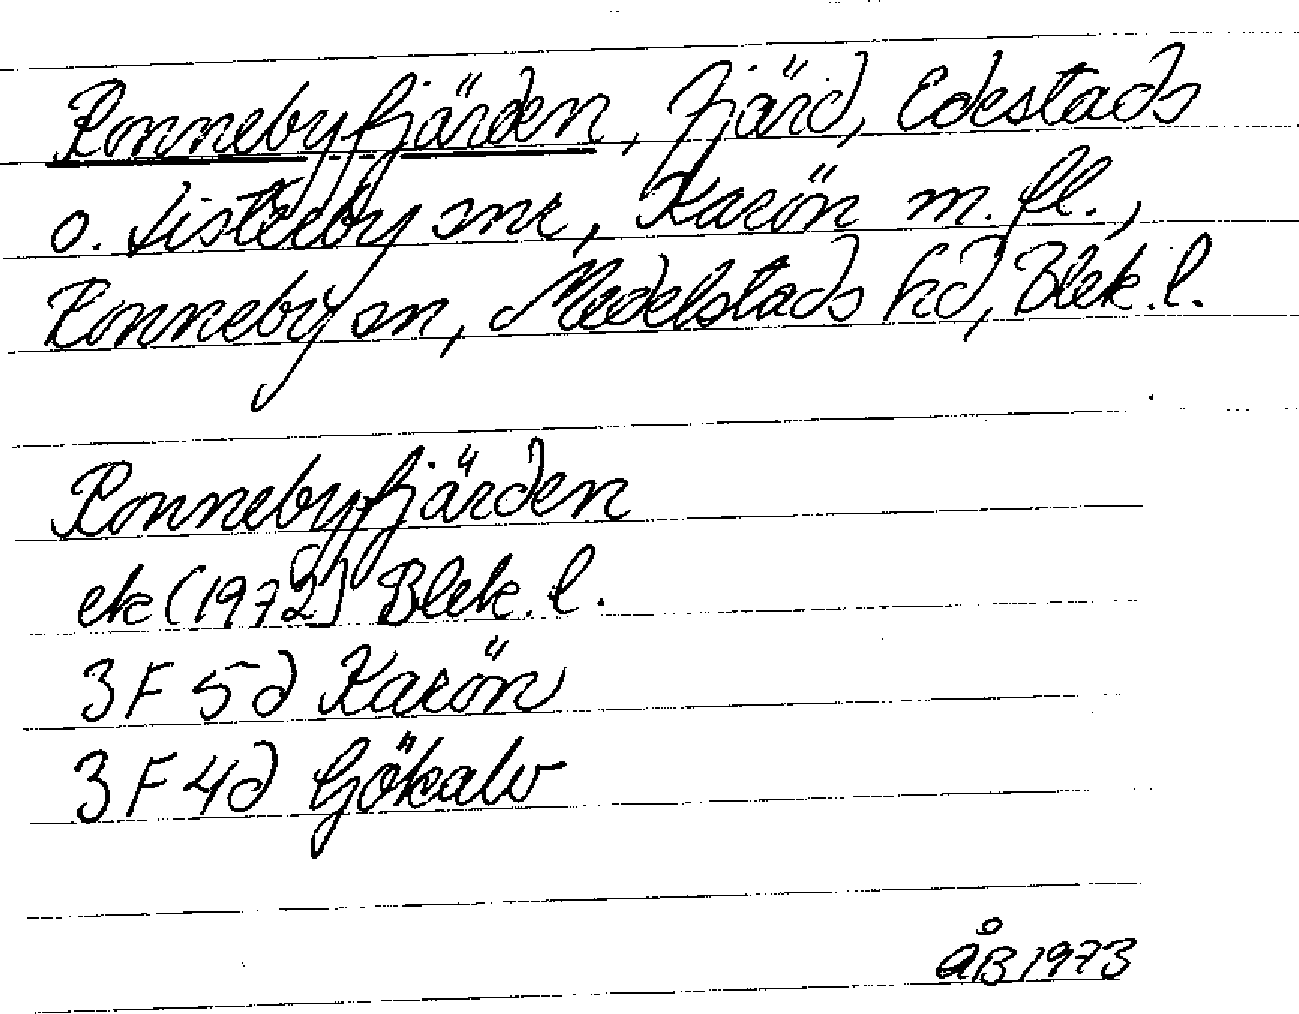 Ronnebyfjärden, fjärd, Edestads
o. Listerby snr, Karön m. fl.,
Ronneby sn, Medelstads hd, Blek. l.
Ronnebyfjärden
ek (1972) Blek. l.
3 F 5d Karön
3 F 4d Gökalv
åB 1973